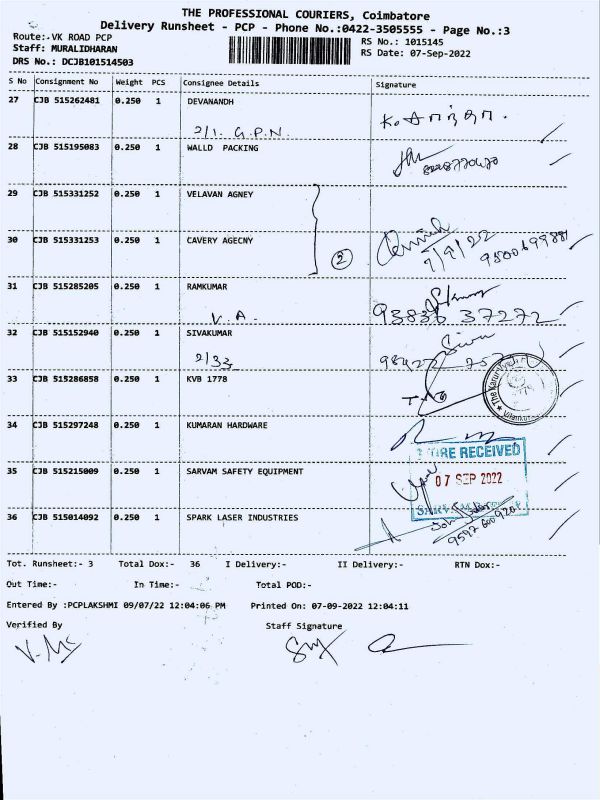 THE PROFESSIONAL COURIERS, Coimbatore
Delivery Runsheet - PCP - Phone No.:0422-3505555 - Page No.:3
Route:-VK ROAD PCP
RS No.: 1015145
Staff: MURALIDHARAN
RS Date: 07-Sep-2022
DRS No.: DCJB101514503
S No Consignment No Weight PCS Consignee Details Signature
27 CJB 515262481 0.250 1 DEVANANDH
2/1. G.P.N.
28 CJB 515195083 0.250 1 WALLD PACKING
29 CJB 515331252 0.250 1 VELAVAN AGNEY
30 CJB 515331253 0.250 1 CAVERY AGECNY
2
7/9/22
9500699881
31 CJB 515285205 0.250 1 RAMKUMAR
V.A.
93838 37272
32 CJB 515152940 0.250 1 SIVAKUMAR
Siva
2/33
33 CJB 515286858 0.250 1 KVB 1778
34 CJB 515297248 0.250 1 KUMARAN HARDWARE
RECEIVED
35 CJB 515215009 0.250 1 SARVAM SAFETY EQUIPMENT
07 SEP 2022
36 CJB 515014092 0.250 1 SPARK LASER INDUSTRIES
Tot. Runsheet:- 3 Total Dox:- 36 I Delivery:- II Delivery:- RTN Dox:-
Out Time:- In Time:- Total POD:-
Entered By :PCPLAKSHMI 09/07/22 12:04:06 PM Printed On: 07-09-2022 12:04:11
Verified By Staff Signature